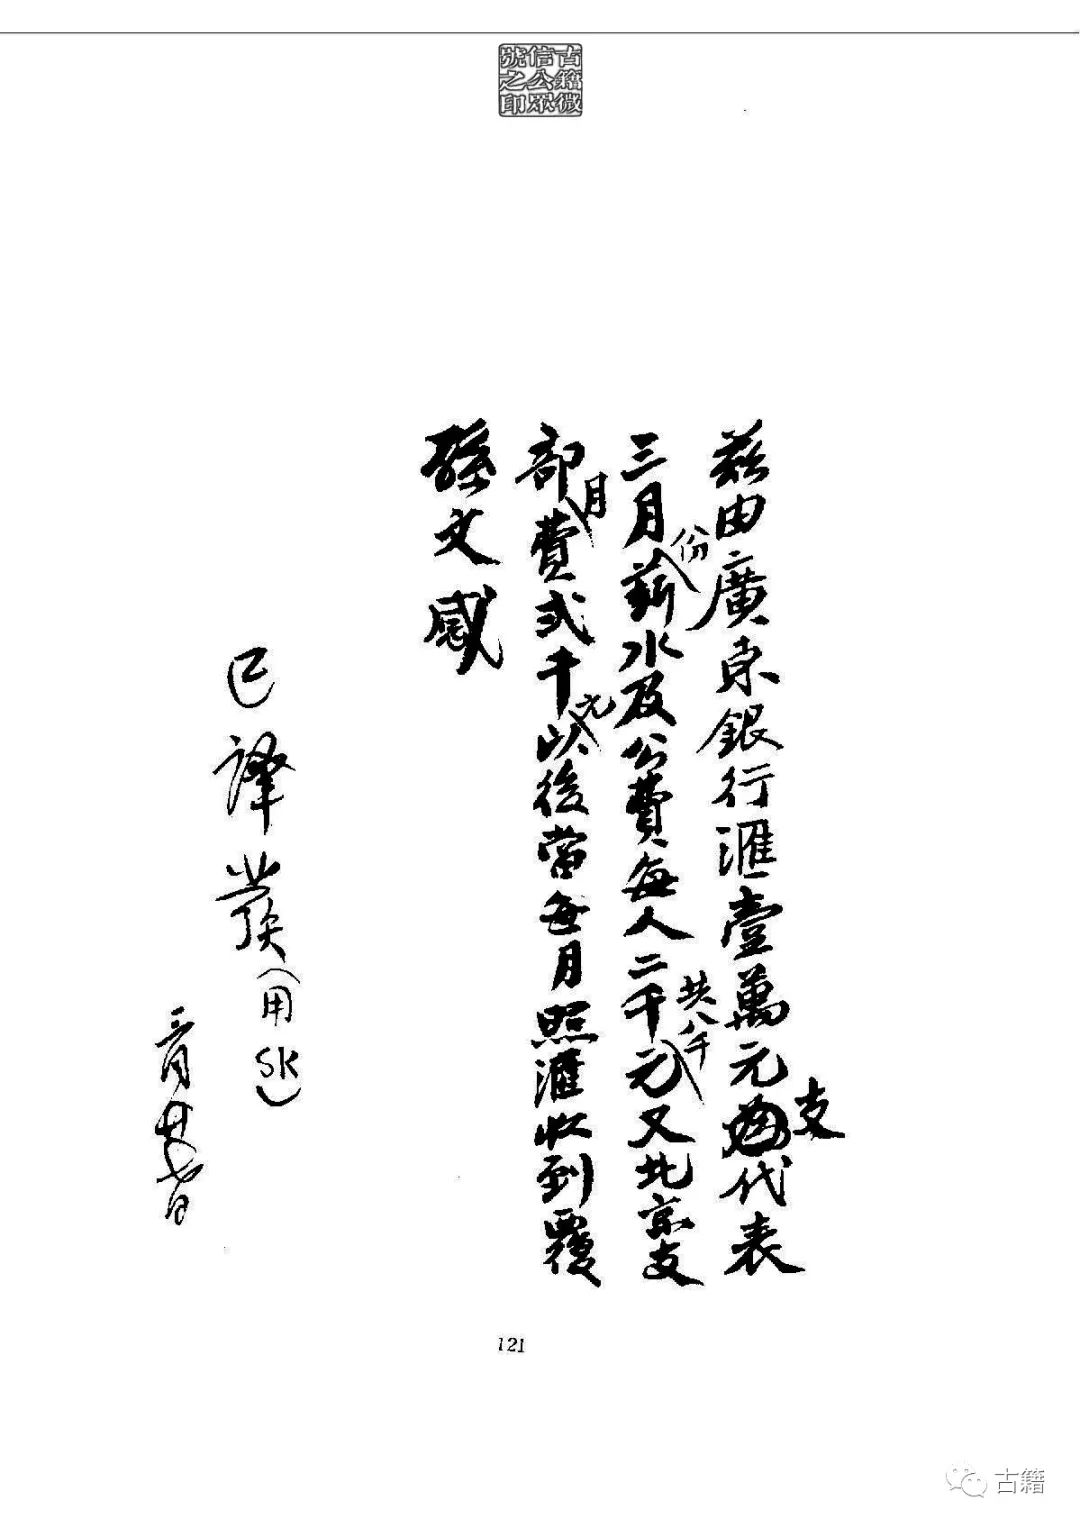 古籍微
信公眾
號之印
茲由廣東銀行滙壹萬元支代表
三月份薪水及公費每人二千元共八千又北京支
部月費弍千元以後當每月照滙收到覆
孫文感
已譯發（用SK）
三月廿七日
121
古籍